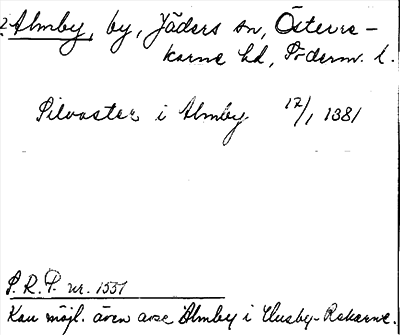 2 Almby, by, Jäders sn, Österre-
karne hd, Söderm. l.
Silvaster i Almby 12/1 1381
S. R. P. nr. 1551
Kan möjl. även avse Almby i Husby-Rekarne.